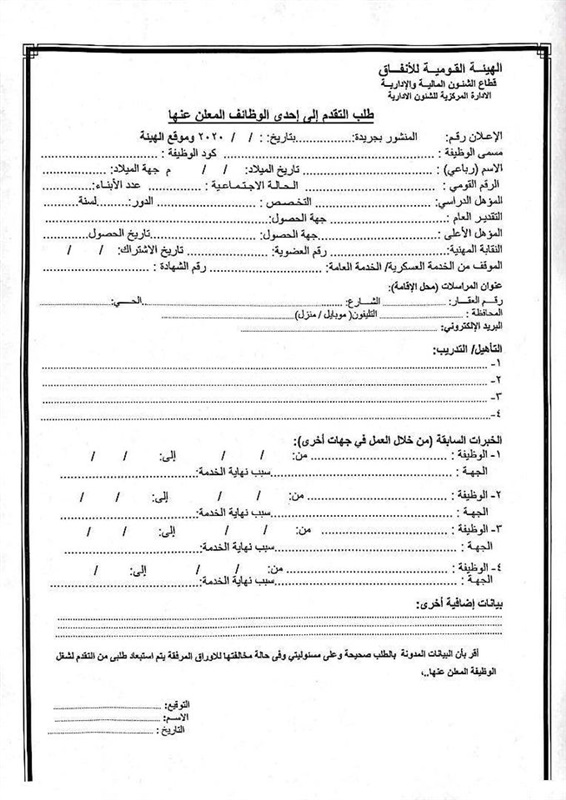 الهيئة القومية للأنفاق
قطاع الشئون المالية والإدارية
الادارة المركزية للشئون الادارية
طلب التقدم إلى إحدى الوظائف المعلن عنها
الإعلان رقم: المنشور بجريدة:................بتاريخ: : / / ٢٠٢٠ وموقع الهيئة
مسمى الوظيفة : .................................................... كود الوظيفة : ............................
الاسم (رباعي) : ............................ تاريخ الميلاد: / / م جهة الميلاد: ....................
الرقم القومي : ............................ الحالة الاجتماعية : .................... عدد الأبناء:............
المؤهل الدراسي: ............................ التخصص : .................... الدور:........لسنة..........
التقدير العام : ............................ جهة الحصول: ............................
المؤهل الأعلى : ............................ جهة الحصول: .................... تاريخ الحصول ............
النقابة المهنية: ............................ رقم العضوية: .................... تاريخ الاشتراك: / /
الموقف من الخدمة العسكرية/ الخدمة العامة: .................... رقم الشهادة: ....................
عنوان المراسلات (محل الإقامة):
رقم العقار: .................... الشارع: ............................الحي:....................
المحافظة : ............................ التليفون( موبايل / منزل) ............................
البريد الإلكتروني: ............................
التأهيل/ التدريب:
١- ............................
٢- ............................
٣- ............................
٤- ............................
الخبرات السابقة (من خلال العمل في جهات أخرى):
١- الوظيفة : ............................ من: / / إلى: / /
الجهة : ............................سبب نهاية الخدمة:....................
٢- الوظيفة : ............................ من: / / إلى: / /
الجهة : ............................سبب نهاية الخدمة:....................
٣- الوظيفة : ............................ من: / / إلى: / /
الجهة : ............................سبب نهاية الخدمة:....................
٤- الوظيفة : ............................ من: / / إلى: /
الجهة : ............................سبب نهاية الخدمة:....................
بيانات إضافية أخرى:
أقر بأن البيانات المدونة بالطلب صحيحة وعلى مسئوليتي وفى حالة مخالفتها للاوراق المرفقة يتم استبعاد طلبى من التقدم لشغل
الوظيفة المعلن عنها..،
التوقيع: ....................
الاسم: ....................
التاريخ : ....................